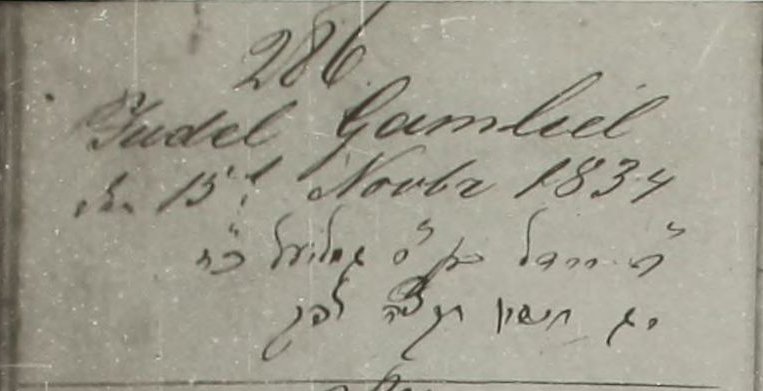 286
Judel Gamliel
15t Novbr 1834
יודל גמליאל
יג חשון תקצה לפק